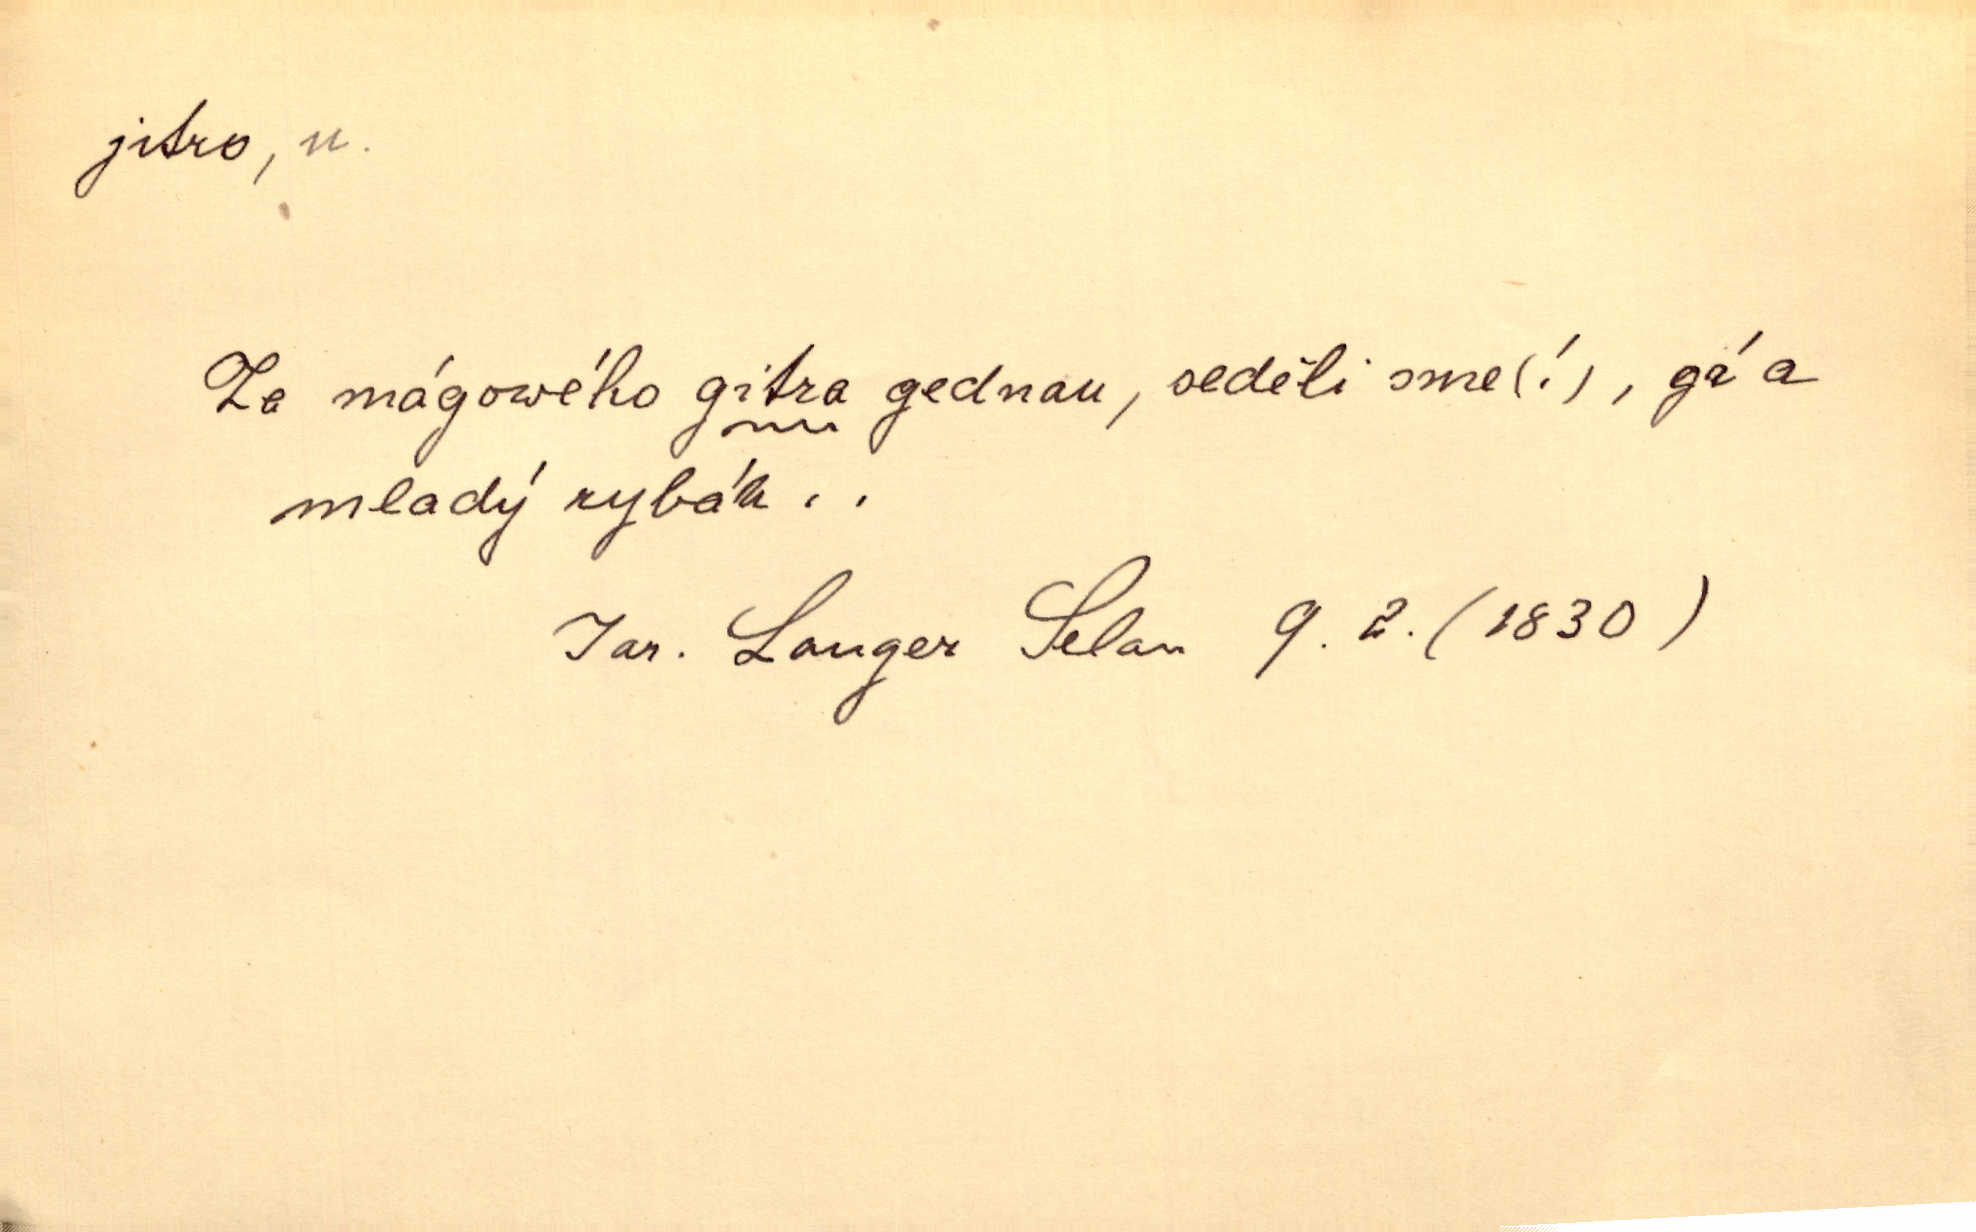 jitro, n.
Za mágowého gitra gednau, seděli sme(!), gá a
mladý rybák . .
Jar. Langer Selan 9. 2. (1830)